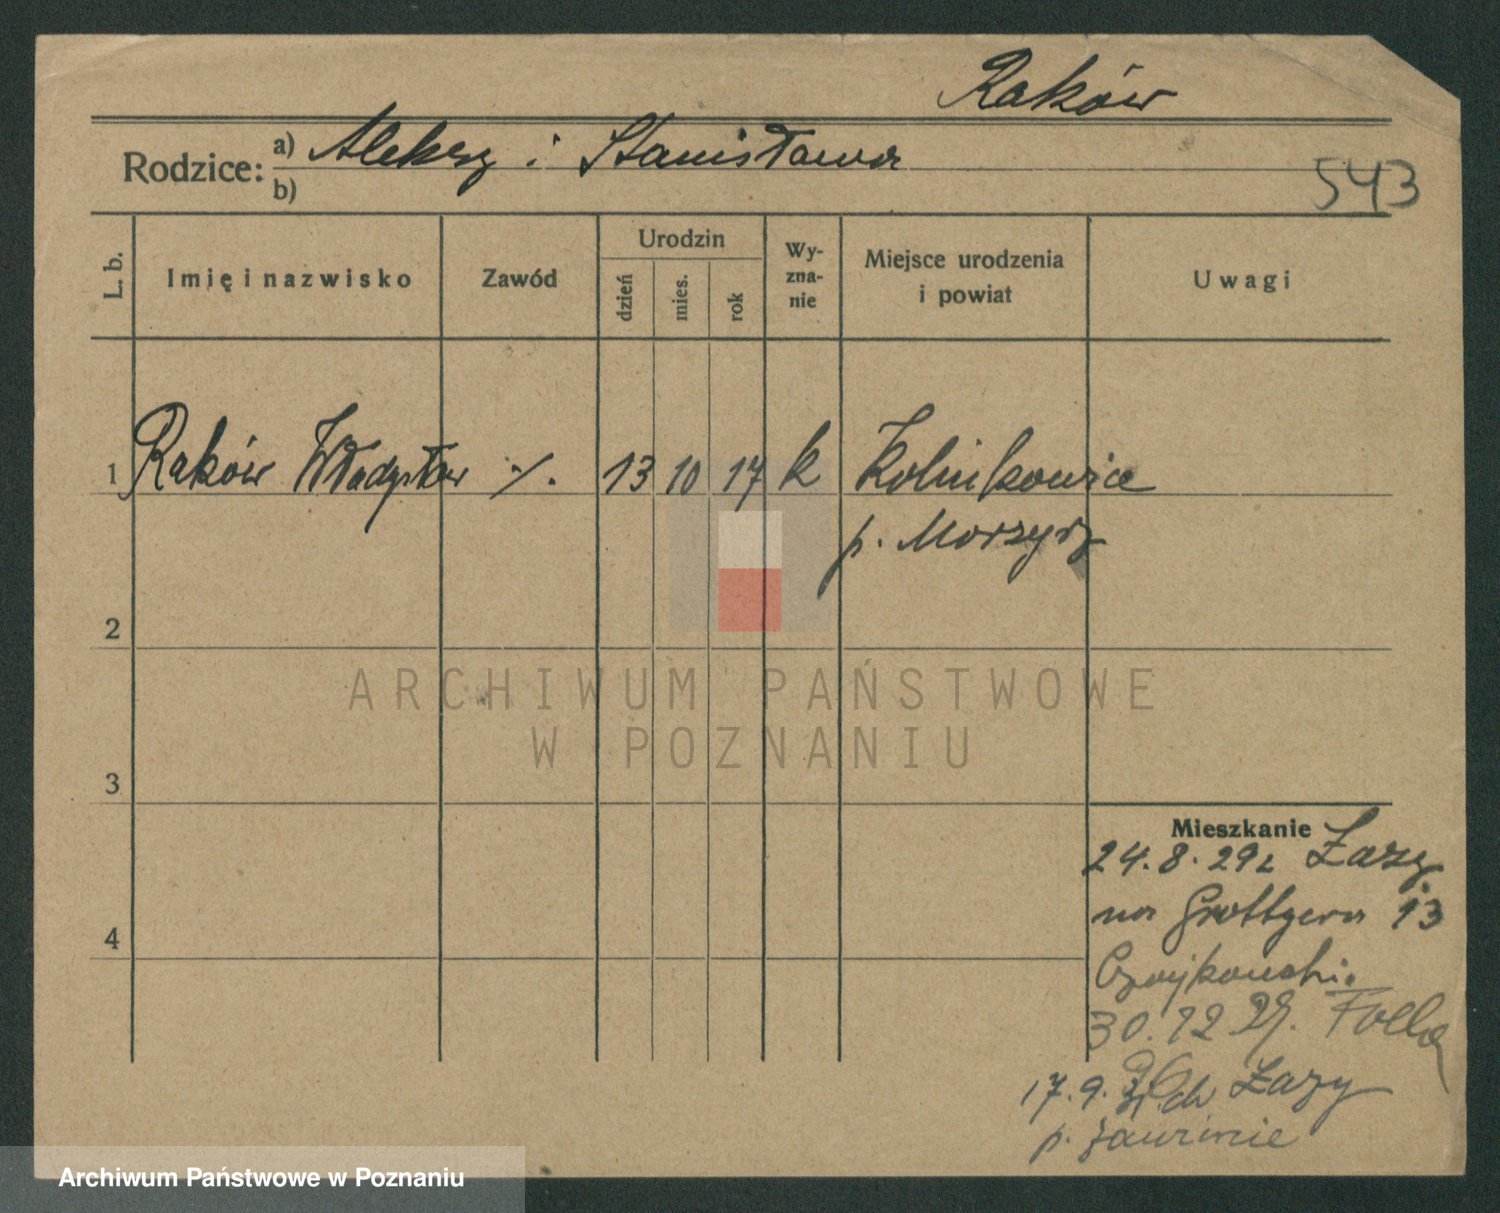 Raków
Rodzice: a) Aleksy i Stanisława
b)
543
L. b.
Imię i nazwisko
Zawód
Urodzin
dzień
mies.
rok
Wy-
zna-
nie
Miejsce urodzenia
i powiat
Uwagi
1 Raków Władysław ./. 13 10 17 k Kolnikowice
p.
2
3
4
Mieszkanie
24.8.29 Łazy
na Grottgera 13
30.12 29.
17.9. Łazy
p.
ARCHIWUM PAŃSTWOWE
W POZNANIU
Archiwum Państwowe w Poznaniu